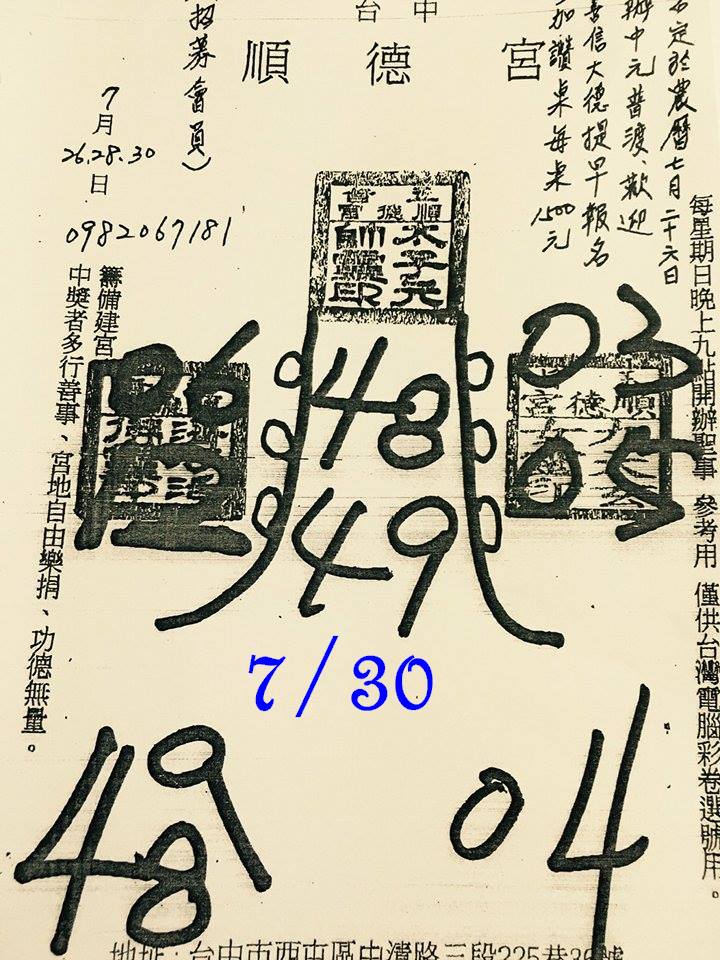 台中
順德宮
否定於農曆七月二十六日
辦中元普渡、歡迎
善信大德提早報名
加讚桌每桌1500元
招募會員）
7月26.28.30日
0982067181
每星期日晚上九點開辦聖事 參考用 僅供台灣電腦彩卷選號用。
籌備建宮
中獎者多行善事、宮地自由樂捐、功德無量。
太子元
帥靈印
順德宮
06
12
48
49
03
04
7/30
49
48
04
地址：台中市西屯區中清路三段225巷36號